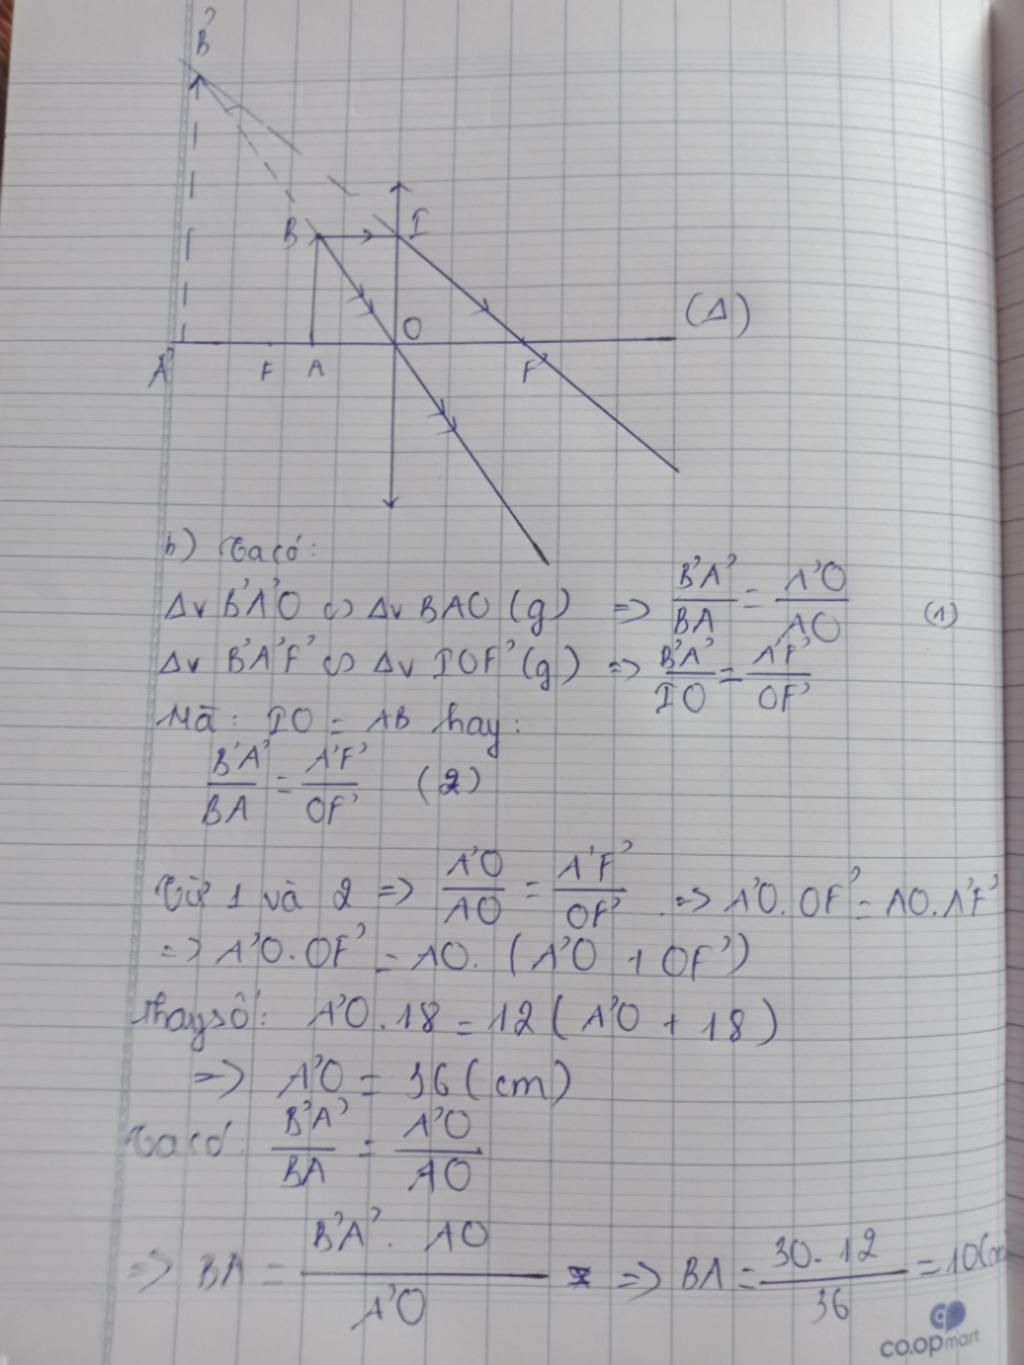 B'
B I
O (Δ)
A' F A F'
b) Ta có:
Δv B'A'O ∽ Δv BAO (g) => B'A'/BA = A'O/AO (1)
Δv B'A'F' ∽ Δv IOF' (g) => B'A'/IO = A'F'/OF'
Mà: IO = AB hay:
B'A'/BA = A'F'/OF' (2)
Từ 1 và 2 => A'O/AO = A'F'/OF' => A'O.OF' = AO.A'F'
=> A'O.OF' = AO.(A'O + OF')
Thay số: A'O.18 = 12(A'O + 18)
=> A'O = 36(cm)
Ta có: B'A'/BA = A'O/AO
=> BA = B'A'.AO/A'O => BA = 30.12/36 = 10(
co.opmart